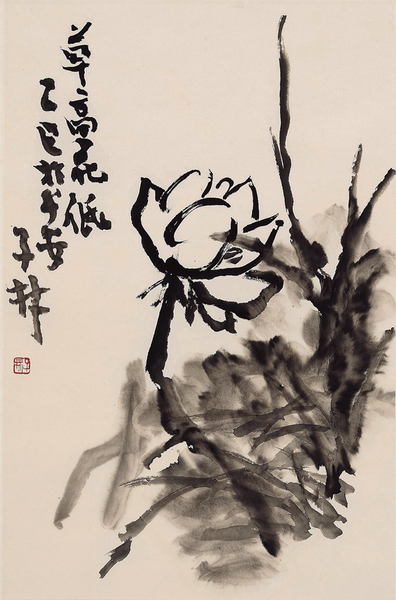 草高花低
乙巳於长安
子林